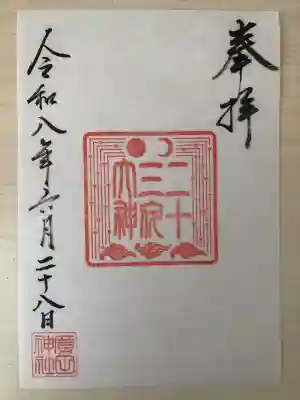 奉拝
二十
三夜
大神
令和八年六月二十八日
神社